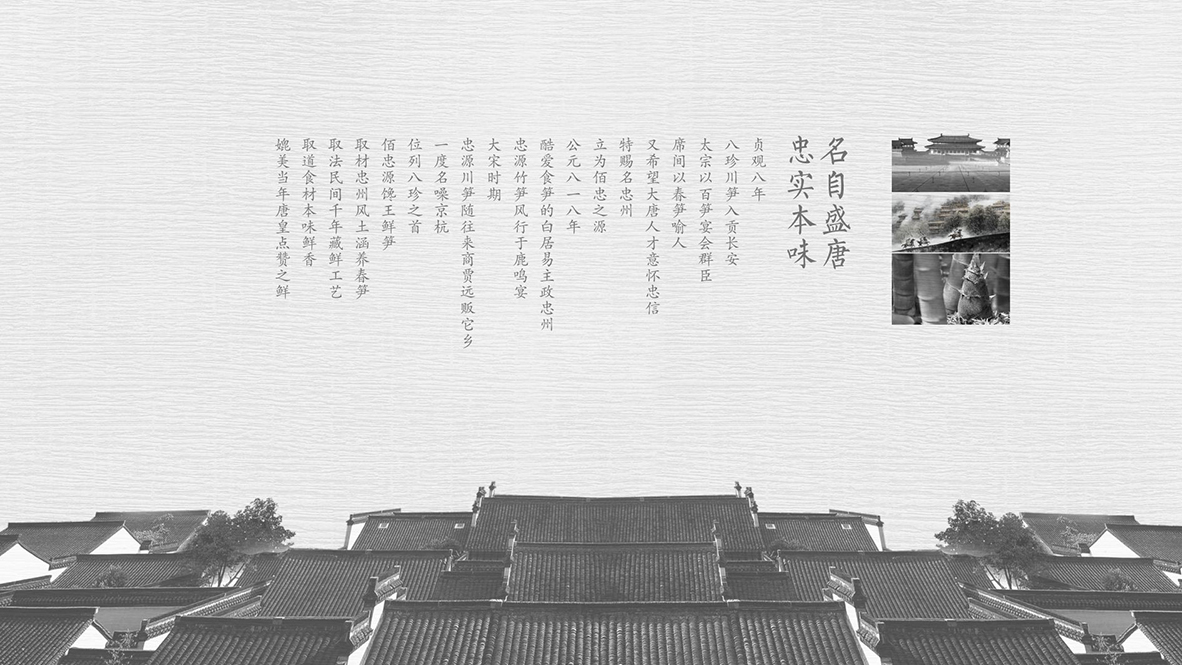 名自盛唐
忠实本味
贞观八年
八珍川笋入贡长安
太宗以百笋宴会群臣
席间以春笋喻人
又希望大唐人才意怀忠信
特赐名忠州
立为佰忠之源
公元八一八年
酷爱食笋的白居易主政忠州
忠源竹笋风行于鹿鸣宴
大宋时期
忠源川笋随往来商贾远贩它乡
一度名噪京杭
位列八珍之首
佰忠源馋王鲜笋
取材忠州风土涵养春笋
取法民间千年藏鲜工艺
取道食材本味鲜香
媲美当年唐皇点赞之鲜